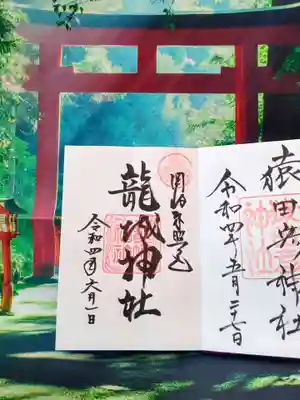 猿田彦神社
令和四年五月二十七日
岡崎東照宮
龍城神社
令和四年六月一日